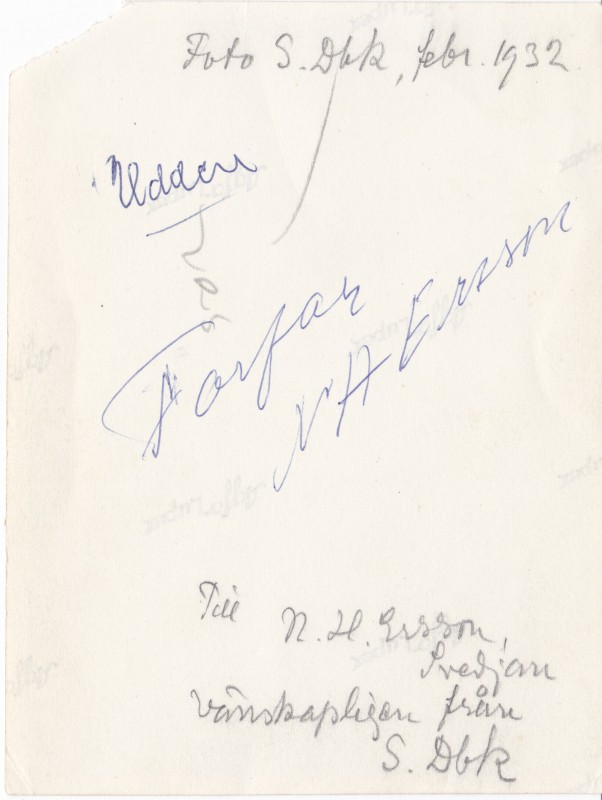 Foto S. Dbk, febr. 1932
Udden
Farfar
N H Ersson
Till
N. H. Ersson,
Svedjan
vänskapligen från
S. Dbk